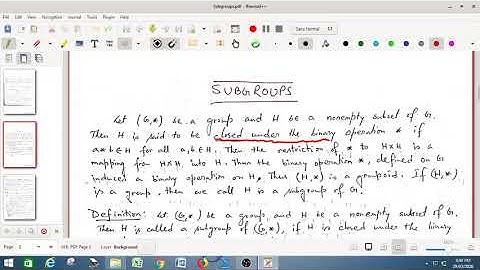 Subgroups.pdf - Xournal++
File Edit View Navigation Journal Tools Plugin Help
Sans Normal 12
SUBGROUPS
Let (G,*) be a group and H be a nonempty subset of G.
Then H is said to be closed under the binary operation * if
a*b∈H for all a,b∈H. Then the restriction of * to H×H is a
mapping from H×H into H. Thus the binary operation *, defined on G
induces a binary operation on H. Thus (H,*) is a groupoid. If (H,*)
is a group, then we call H is a subgroup of G.
Definition: Let (G,*) be a group, and H be a nonempty subset of G.
Then H is called a subgroup of (G,*), if H is closed under the binary
Page 2 Layer Background